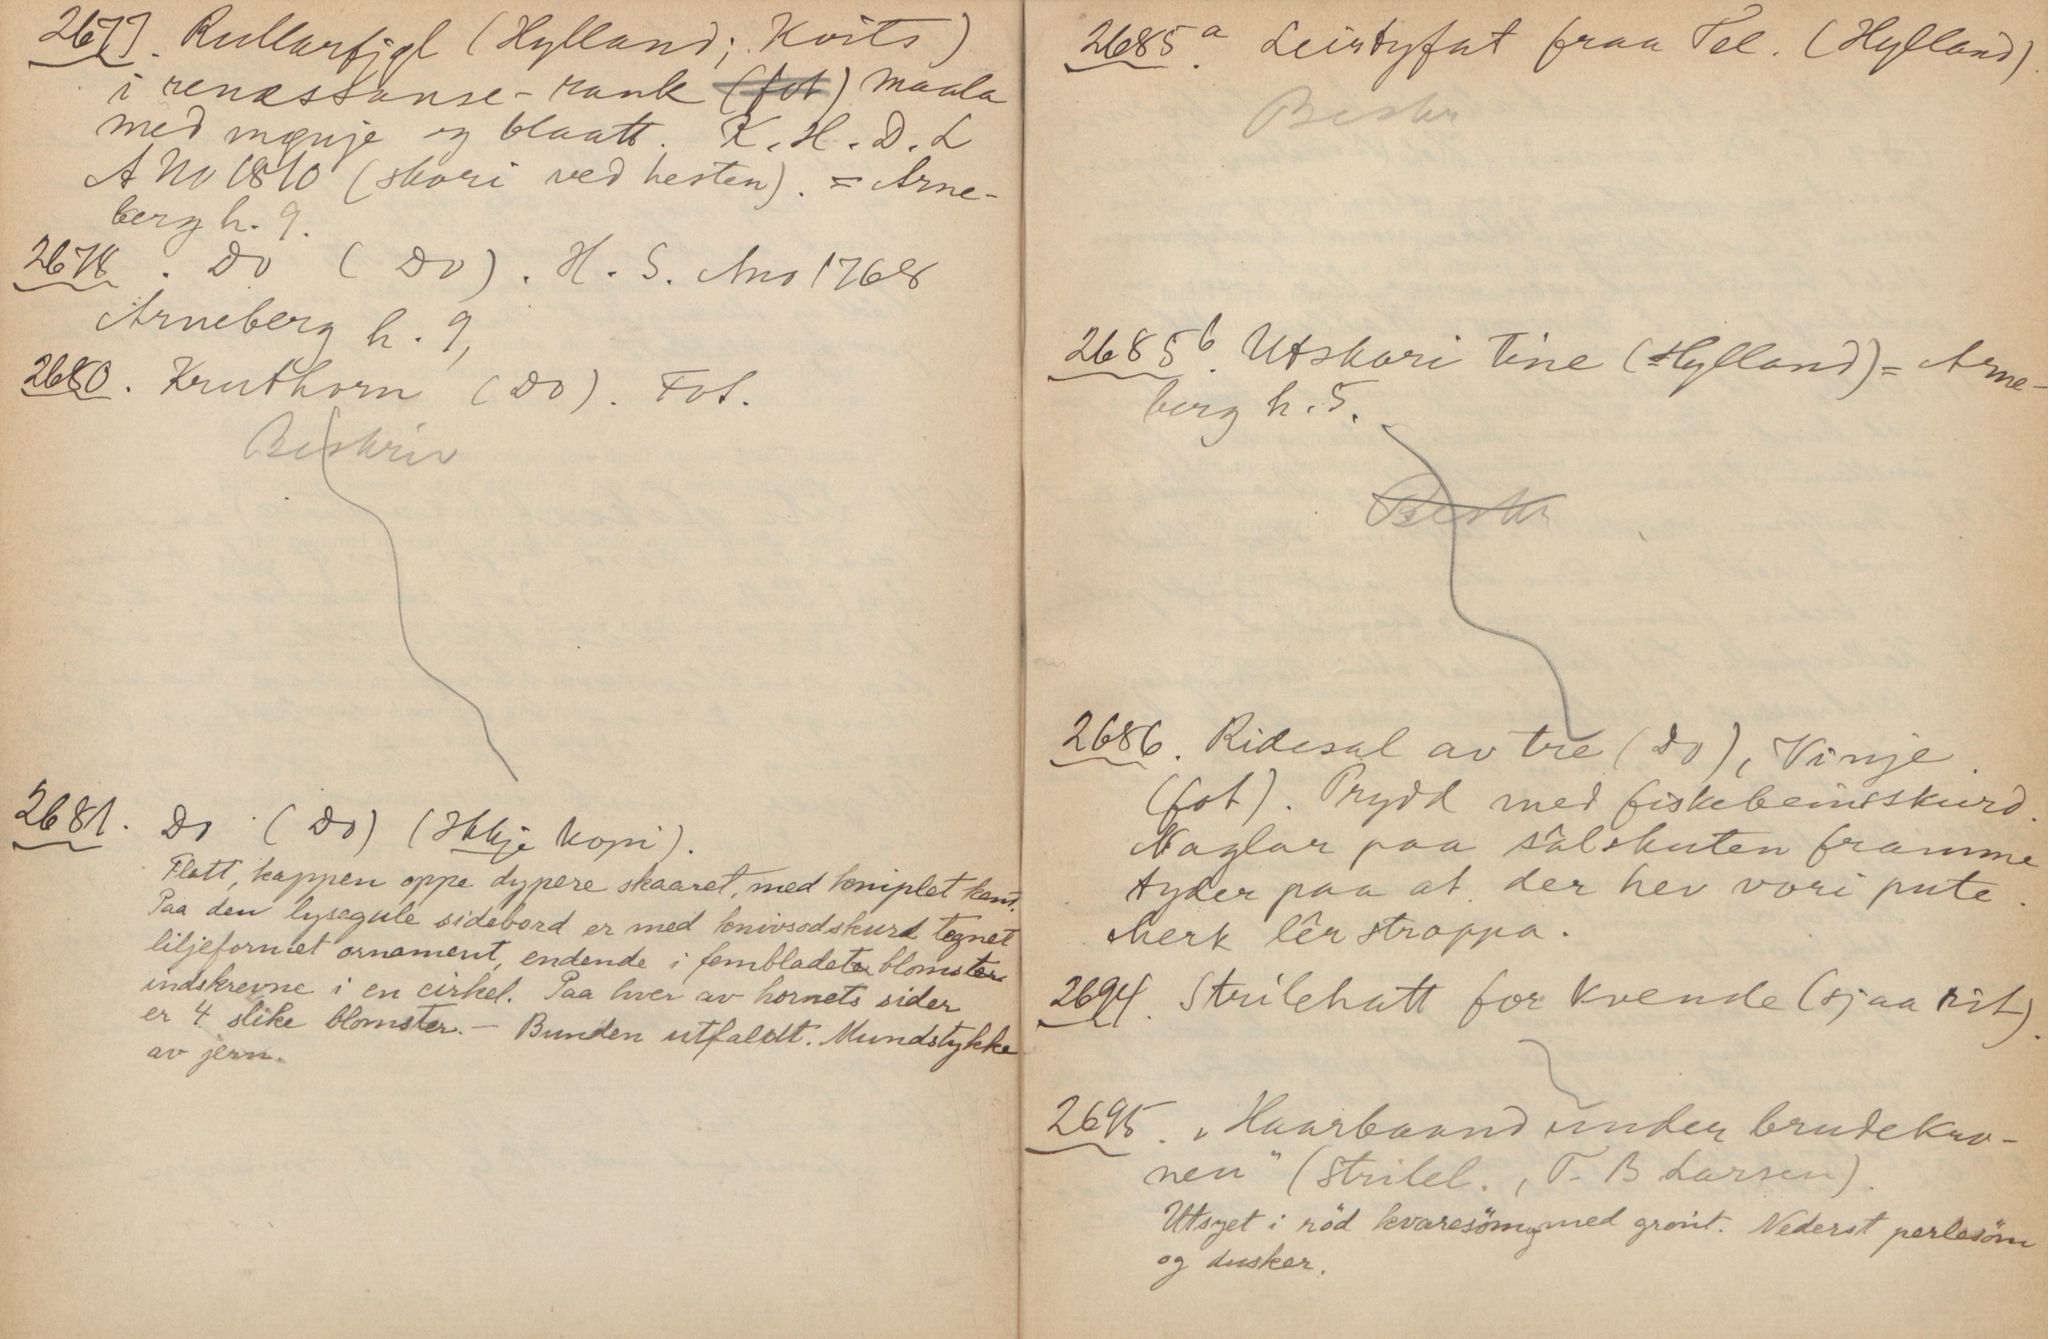 2677. Rullarfjøl (Hylland; Kvits)
i renæssanse-rank (fot) maala
med mønje og blaatt. K. H. D. L
A No 1810 (skori ved hesten). = Arne-
berg h. 9.
2678. Do (Do). H. S. Ano 1768
Arneberg h. 9,
2680. Kruthorn (Do). Fot.
Beskriv
2681. Do (Do) (Ikkje kopi).
Flatt, kappen oppe dypere skaaret, med kniplet kant.
Paa den lysegule sidebord er med knivsodskurd tegnet
liljeformet ornament, endende i fembladete blomster
indskrevne i en cirkel. Paa hver av hornets sider
er 4 slike blomster. — Bunden utfaldt. Mundstykke
av jern.
2685a. Leirtyfat fraa Tel. (Hylland).
Beskr
2685b. Utskori Tine (Hylland) = Arne-
berg h. 5.
Beskr
2686. Ridesal av tre (Do), Vinje.
(fot). Prydd med fiskebeinsskurd.
Naglar paa sålskuten framme
tyder paa at der hev vori pute.
Merk lêrstroppa.
2694. Strilehatt for kvende (sjaa rit).
2695. „Haarbaand under brudekro-
nen" (Strilel., T. B Larsen).
Utsyet i röd kvaresöm og med grönt. Nederst perlesöm
og dusker.